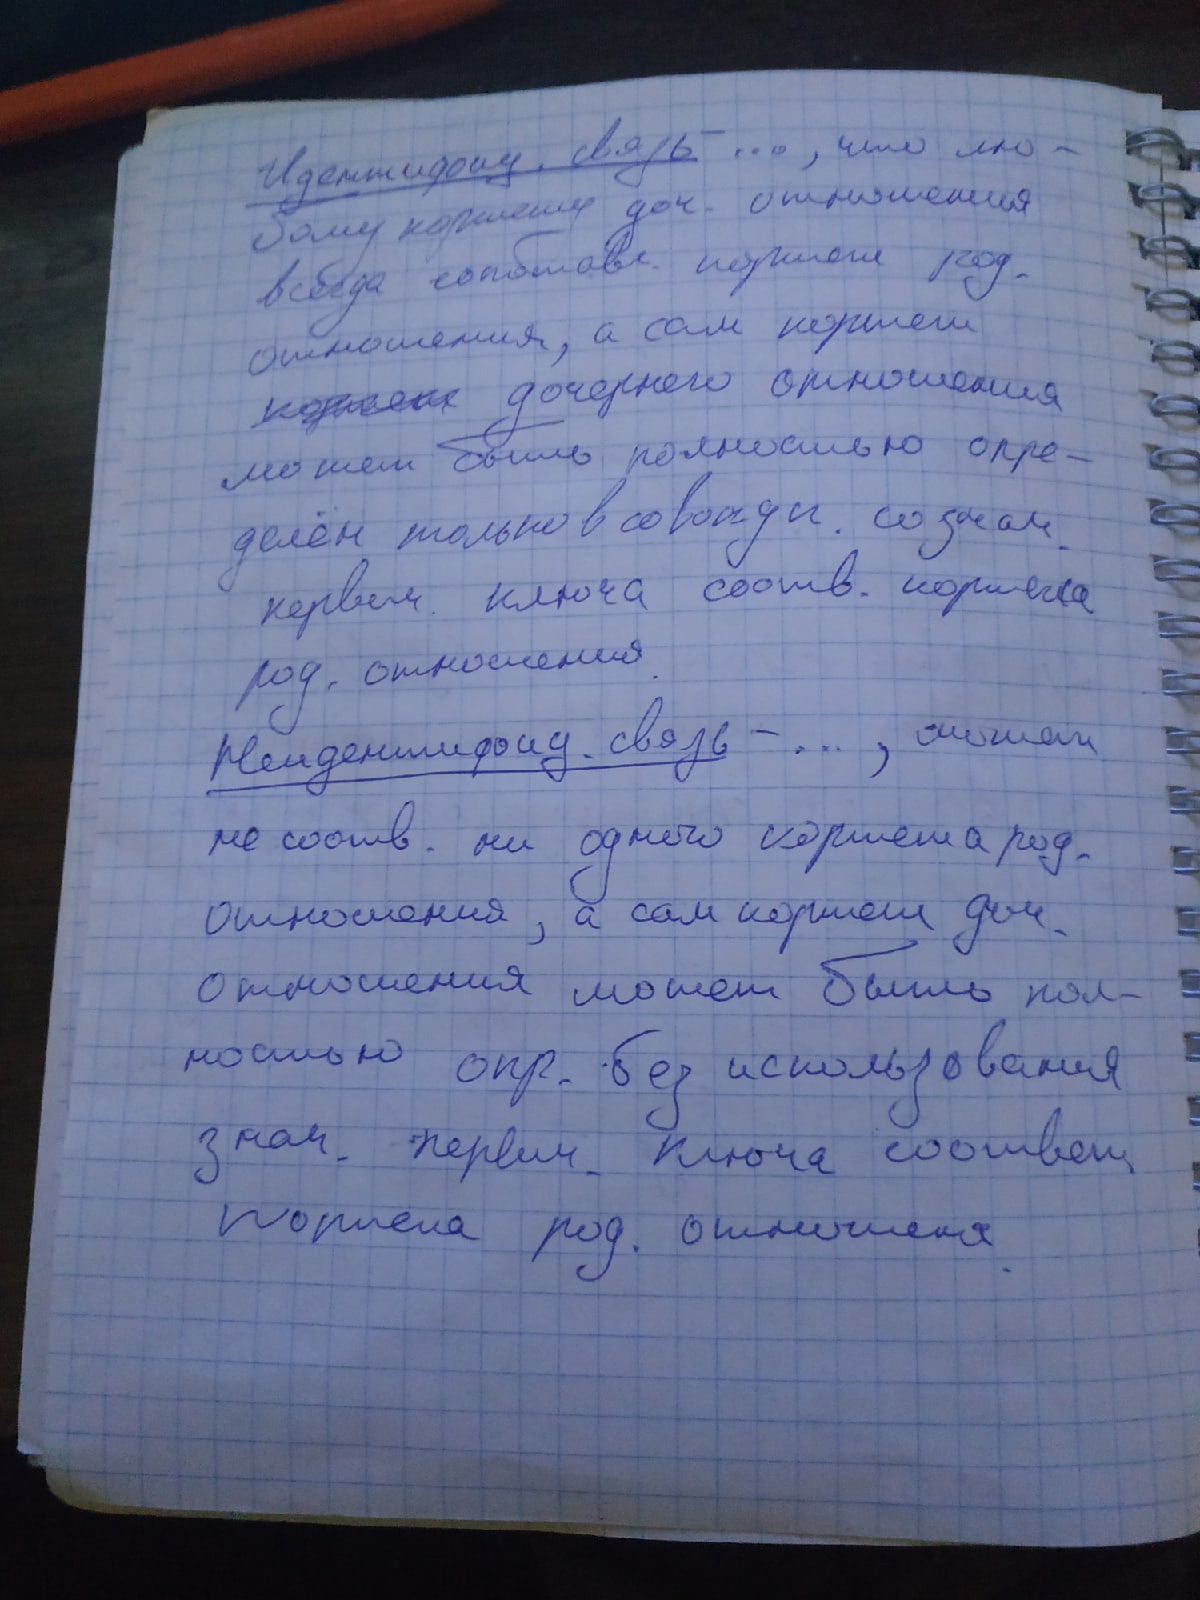 Идентифоиц. связь – ..., что лю-
бому кортежу доч. отношения
всегда сопоставл. кортеж род.
отношения, а сам кортеж
дочернего отношения
может быть полностью опре-
делён только в совокупн. со знач.
первич. ключа соотв. кортежа
род. отношения.
Неидентифоиц. связь – ..., может
не соотв. ни одного кортежа род.
отношения, а сам кортеж доч.
отношения может быть пол-
ностью опр. без использования
знач. первич. ключа соответ.
кортежа род. отношения.